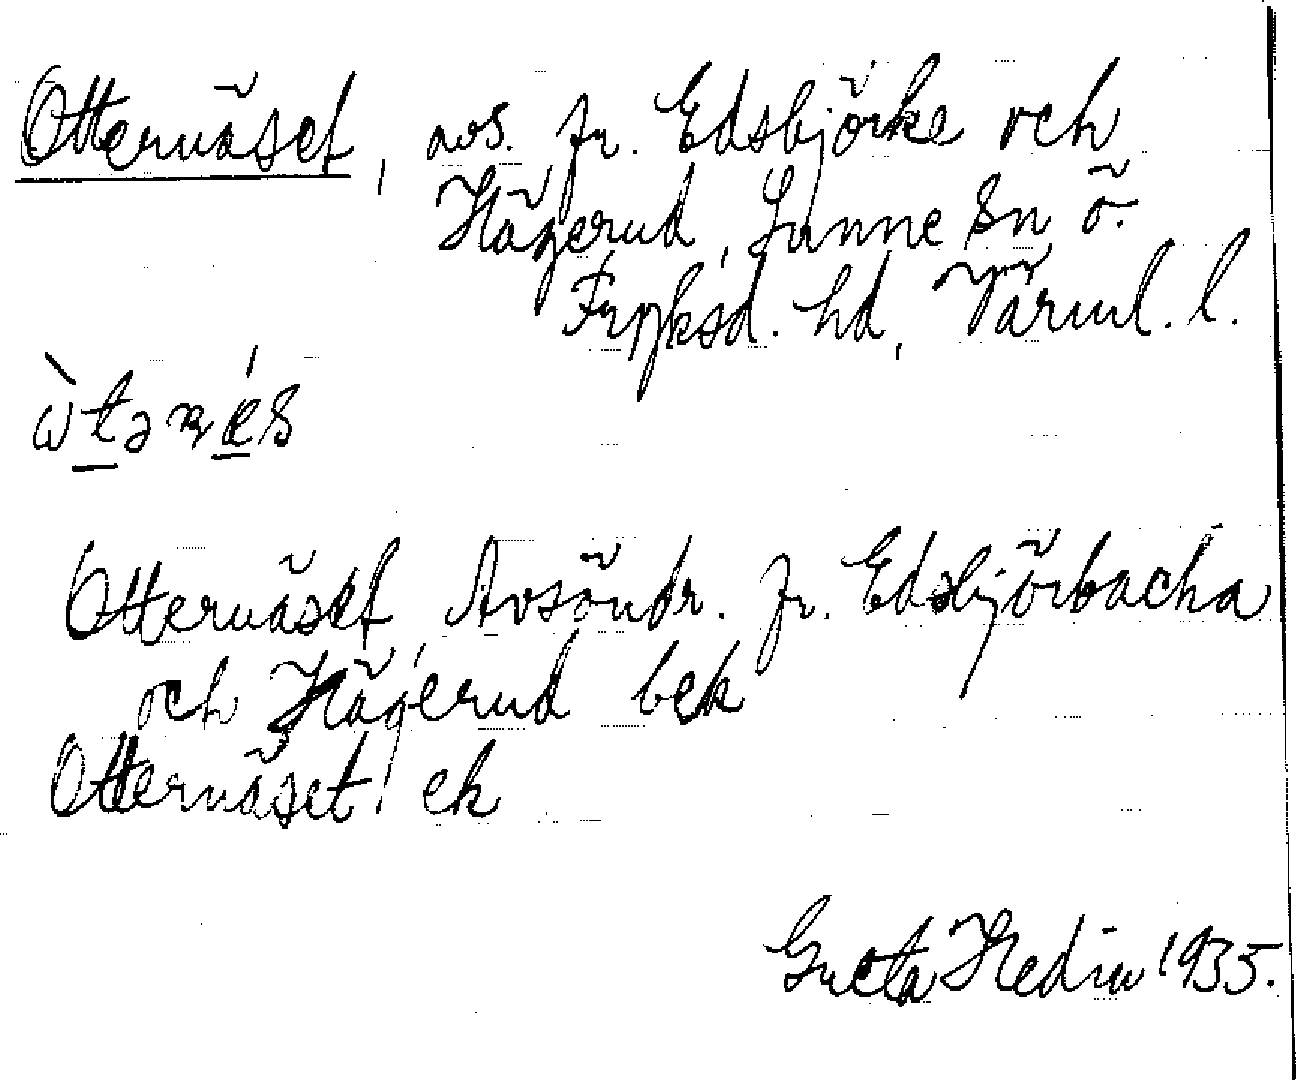 Otternäset, avs. fr. Edsbjörke och
Hågerud, Sunne sn Ö.
Fryksd. hd, Värml. l.
Otternäset, Avsöndr. fr. Edsbjörbacka
och Hågerud bek
Otternäset ek
Greta Hedin 1935.